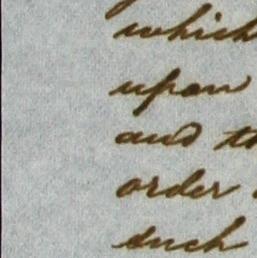 which
upon
and th
order
such